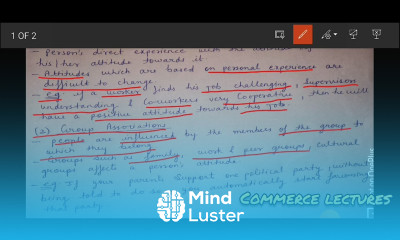 1 OF 2
- Person's direct experience with the
his/her attitude towards it
- Attitudes which are based on personal experience are
difficult to change.
- eg if a worker finds his job challenging, supervisor
understanding & coworkers very cooperative, then he will
have a positive attitude towards his job.
(2) Group Associations
- people are influenced by the members of the group to
which they belong.
- Groups such as family, work & peer groups, cultural
groups affects a person's attitude
- eg If your parents support one political party, without
being told to do so, you automatically start favouring
that party
Mind
Luster
COMMERCE LECTURES